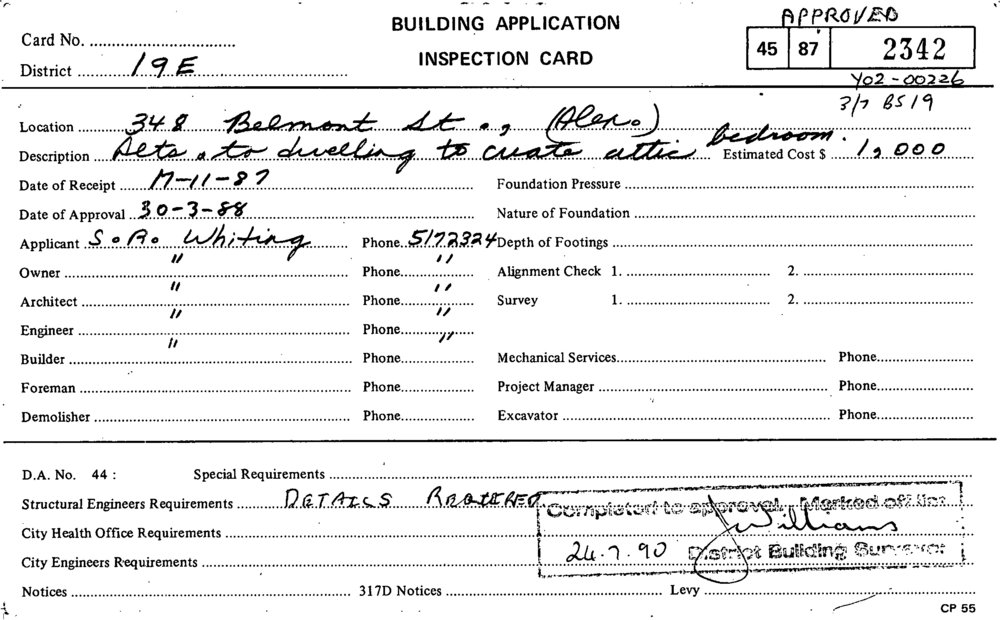 APPROVED
BUILDING APPLICATION
INSPECTION CARD
45 87 2342
Card No.
District 19E
Y02-00226
3/7 BS19
Location 348 Belmont St., (Alex.)
Description Alts. to dwelling to create attic bedroom. Estimated Cost $ 1,000
Date of Receipt 17-11-87 Foundation Pressure
Date of Approval 30-3-88 Nature of Foundation
Applicant S.A. Whiting Phone 5172324 Depth of Footings
Owner " Phone " Alignment Check 1. 2.
Architect " Phone " Survey 1. 2.
Engineer " Phone "
Builder " Phone " Mechanical Services Phone
Foreman Phone Project Manager Phone
Demolisher Phone Excavator Phone
D.A. No. 44 : Special Requirements
Structural Engineers Requirements DETAILS REQUIRED
Completed to approval. Marked off list.
City Health Office Requirements Williams
City Engineers Requirements 24.7.90 District Building Surveyor
Notices 317D Notices Levy
CP 55